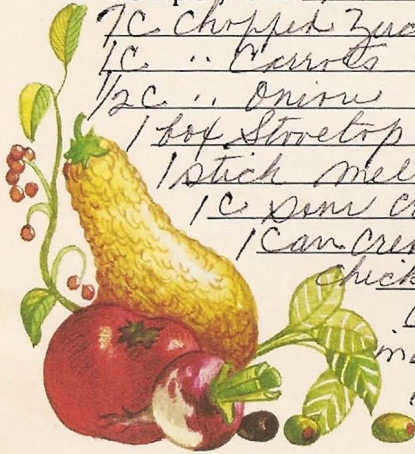 7C Chopped Zuc
1C " Carrots
1/2C " Onion
1 box Stovetop
1 stick mel
1C Sour C
1 Can Cre
Chick